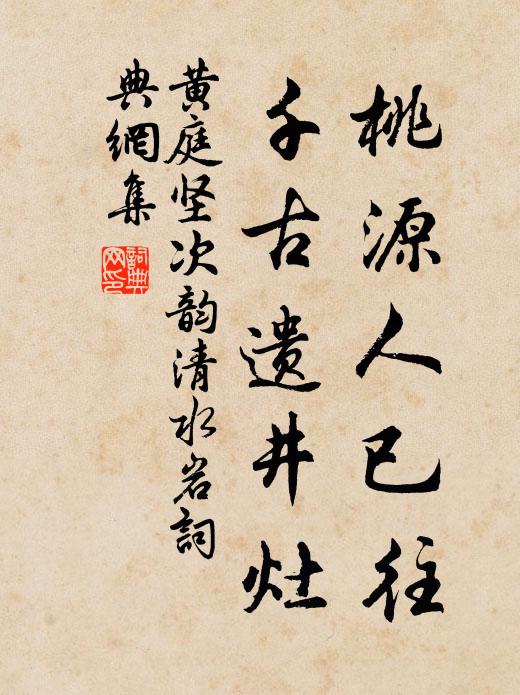 桃源人已往
千古遗井灶
黄庭坚次韵清水岩詞
典網集
詞典网印